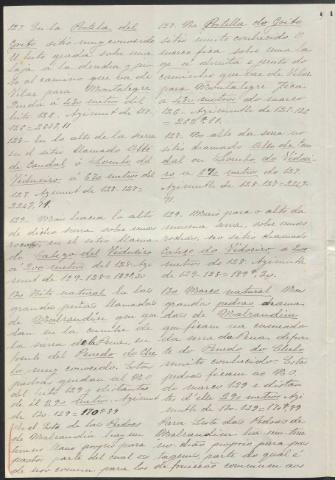 127. En la Portela del
Goito, sitio muy conocido
El hito queda sobre una
laja á la derecha y jun-
to al camino que va de
Vilar para Montalegre
Queda á 420 metros del
hito 126. Azimut de 127.
128. En lo alto de la sierra
en el sitio llamado Alto
de Candal ó Lombo del
Vidueiro, á 290 metros del
127. Azimut de 128-127=
129. Mas hacia lo alto
de dicha sierra sobre unas
rocas, en el sitio llama-
do Talego del Vidueiro
á 200 metros del 128. Azi-
mut de 129-128=189º20.
130 Hito natural en las
grandes peñas llamadas
de Malrandin que que-
dan en la cumbre de
la sierra de la Pena, en
frente del Penedo do Che-
lo muy conocido. Estas
piedras quedan al N.O.
del hito 129 y distantes
de el 220 metros. Azimut
de 130-129=170º99
En el Sito de las Piedras
de Malrandin hay un
terreno raso propio para
pasto parte del cual es
de uso comun para los
127. Na Portella do Goito
sitio muito conhecido O
marco fica sobre uma la-
ja á direita e junto do
caminho que vae de Vilar
para Montalegre Fica
a 420 metros do marco
126. Azimuth de 127-126
128. No alto da serra no
sitio chamado Alto de Can-
dal ou Lombo do Vidoei-
ro a 290 metros do 127.
Azimuth de 128-127=
129. Mais para o alto da
mesma serra, sobre umas
rochas, no sitio chamado
Talego do Vidoeiro a 200
metros do 128. Azimuth
de 129-128=189º20.
130 Marco natural Nas
grandes pedras chama-
das de Malrandin
que ficam na cumeada
da serra da Pena, defron-
te do Penedo do Chelo
muito conhecido. Estas
pedras ficam ao N.O.
do marco 129 e distan-
tes d'elle 220 metros Azi-
muth de 130-129=170º99
Para Leste das Pedras de
Malrandin ha um terre-
no raso proprio para pas-
tagem, parte do qual é
de fruição commum aos